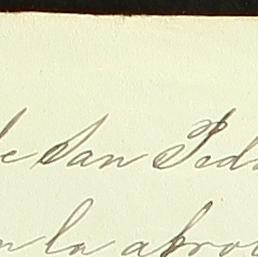 de San Ped
n la aprob